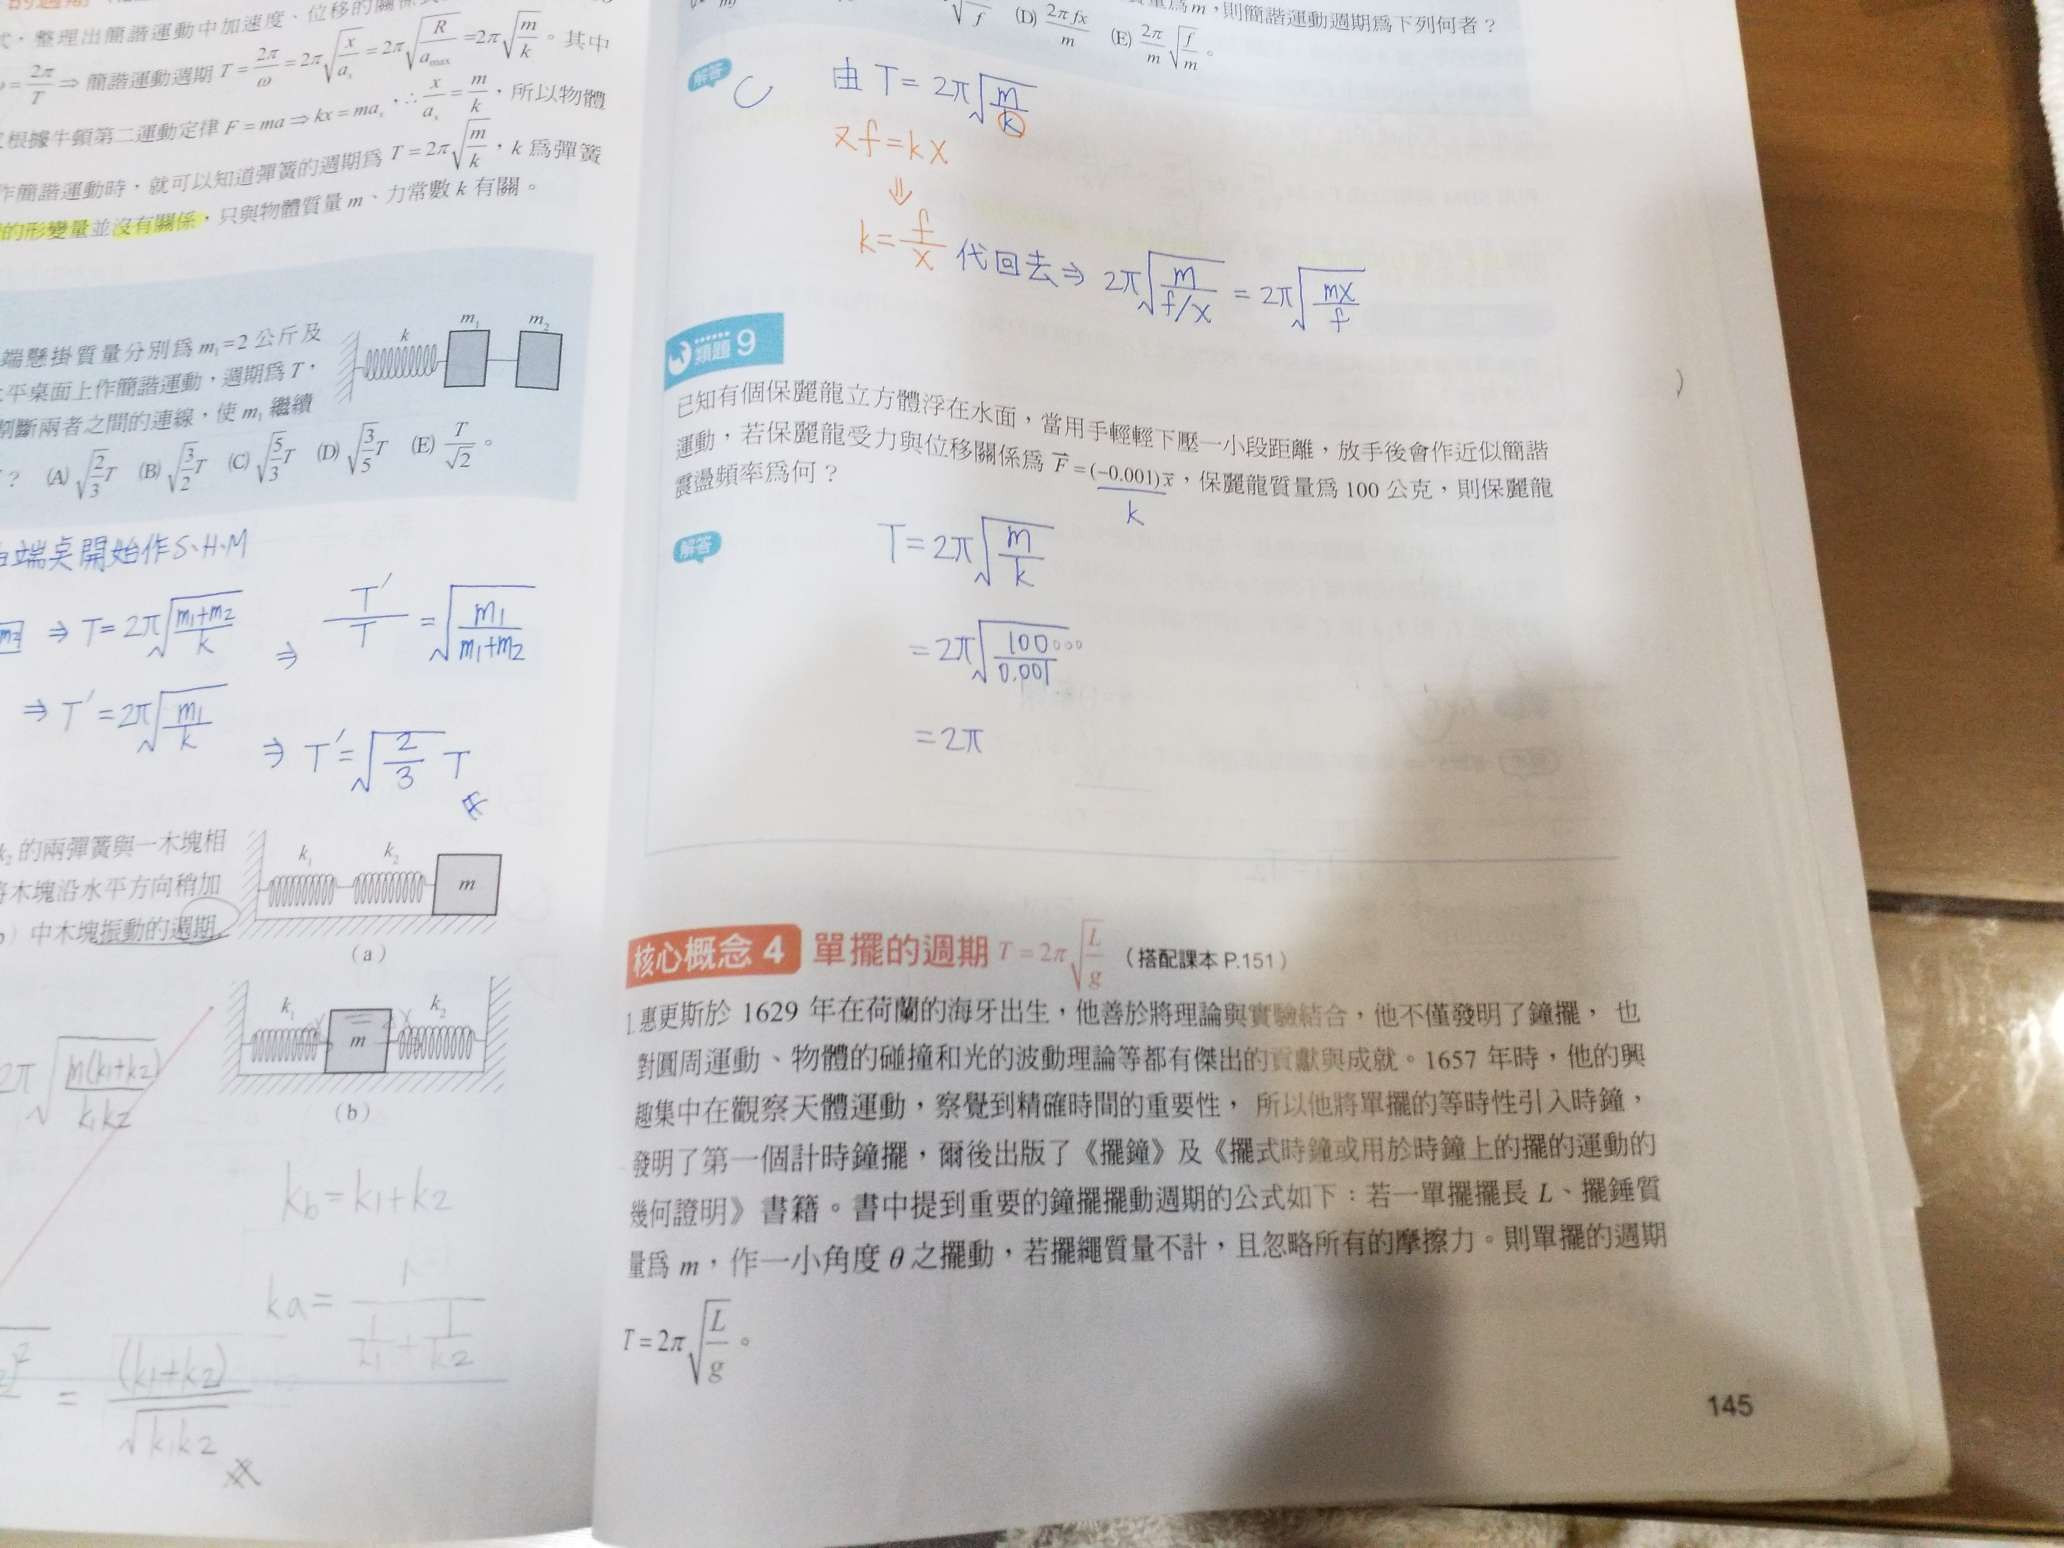 式,整理出簡諧運動中加速度、位移的關係
= 2π/T ⇒ 簡諧運動週期 T = 2π/ω = 2π√(x/aₓ) = 2π√(R/a_max) = 2π√(m/k)。其中
根據牛頓第二運動定律 F = ma ⇒ kx = maₓ,∴ x/aₓ = m/k,所以物體
作簡諧運動時,就可以知道彈簧的週期爲 T = 2π√(m/k),k 爲彈簧
的形變量並沒有關係,只與物體質量 m、力常數 k 有關。
k m₁ m₂
端懸掛質量分別爲 m₁=2 公斤及
平桌面上作簡諧運動,週期爲 T,
割斷兩者之間的連線,使 m₁ 繼續
? (A) √(2/3)T (B) √(3/2)T (C) √(5/3)T (D) √(3/5)T (E) T/√2。
端點開始作S.H.M
⇒ T=2π√((m₁+m₂)/k)
⇒ T'/T = √(m₁/(m₁+m₂))
⇒ T'=2π√(m₁/k)
⇒ T'=√(2/3) T
k₂ 的兩彈簧與一木塊相
將木塊沿水平方向稍加
b)中木塊振動的週期
k₁ k₂ m
(a)
k₁ m k₂
(b)
2π√(m(k₁+k₂)/k₁k₂)
kb=k₁+k₂
ka= 1/(1/k₁+1/k₂)
= (k₁+k₂)/√(k₁k₂)
爲 m,則簡諧運動週期爲下列何者?
(D) 2πfx/m (E) 2π/m √(f/m)。
解答 C
由 T=2π√(m/k)
又f=kx
⇓
k=f/x 代回去⇒ 2π√(m/(f/x)) = 2π√(mx/f)
類題 9
已知有個保麗龍立方體浮在水面,當用手輕輕下壓一小段距離,放手後會作近似簡諧
運動,若保麗龍受力與位移關係爲 F⃗=(−0.001)x⃗,保麗龍質量爲 100 公克,則保麗龍
震盪頻率爲何?
k
解答
T=2π√(m/k)
=2π√(100000/0.001)
=2π
核心概念 4 單擺的週期 T=2π√(L/g) (搭配課本 P.151)
1.惠更斯於 1629 年在荷蘭的海牙出生,他善於將理論與實驗結合,他不僅發明了鐘擺,也
對圓周運動、物體的碰撞和光的波動理論等都有傑出的貢獻與成就。1657 年時,他的興
趣集中在觀察天體運動,察覺到精確時間的重要性,所以他將單擺的等時性引入時鐘,
發明了第一個計時鐘擺,爾後出版了《擺鐘》及《擺式時鐘或用於時鐘上的擺的運動的
幾何證明》書籍。書中提到重要的鐘擺擺動週期的公式如下:若一單擺擺長 L、擺錘質
量爲 m,作一小角度 θ 之擺動,若擺繩質量不計,且忽略所有的摩擦力。則單擺的週期
T=2π√(L/g)。
145